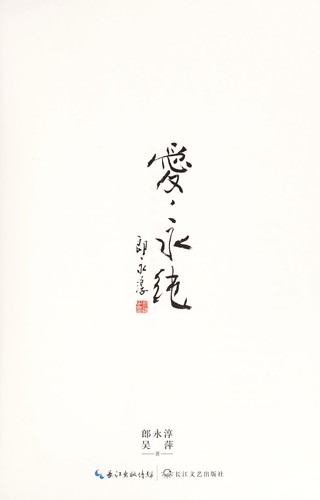 愛·永纯
郎永淳
郎永淳
吴萍
著
长江出版传媒
长江文艺出版社